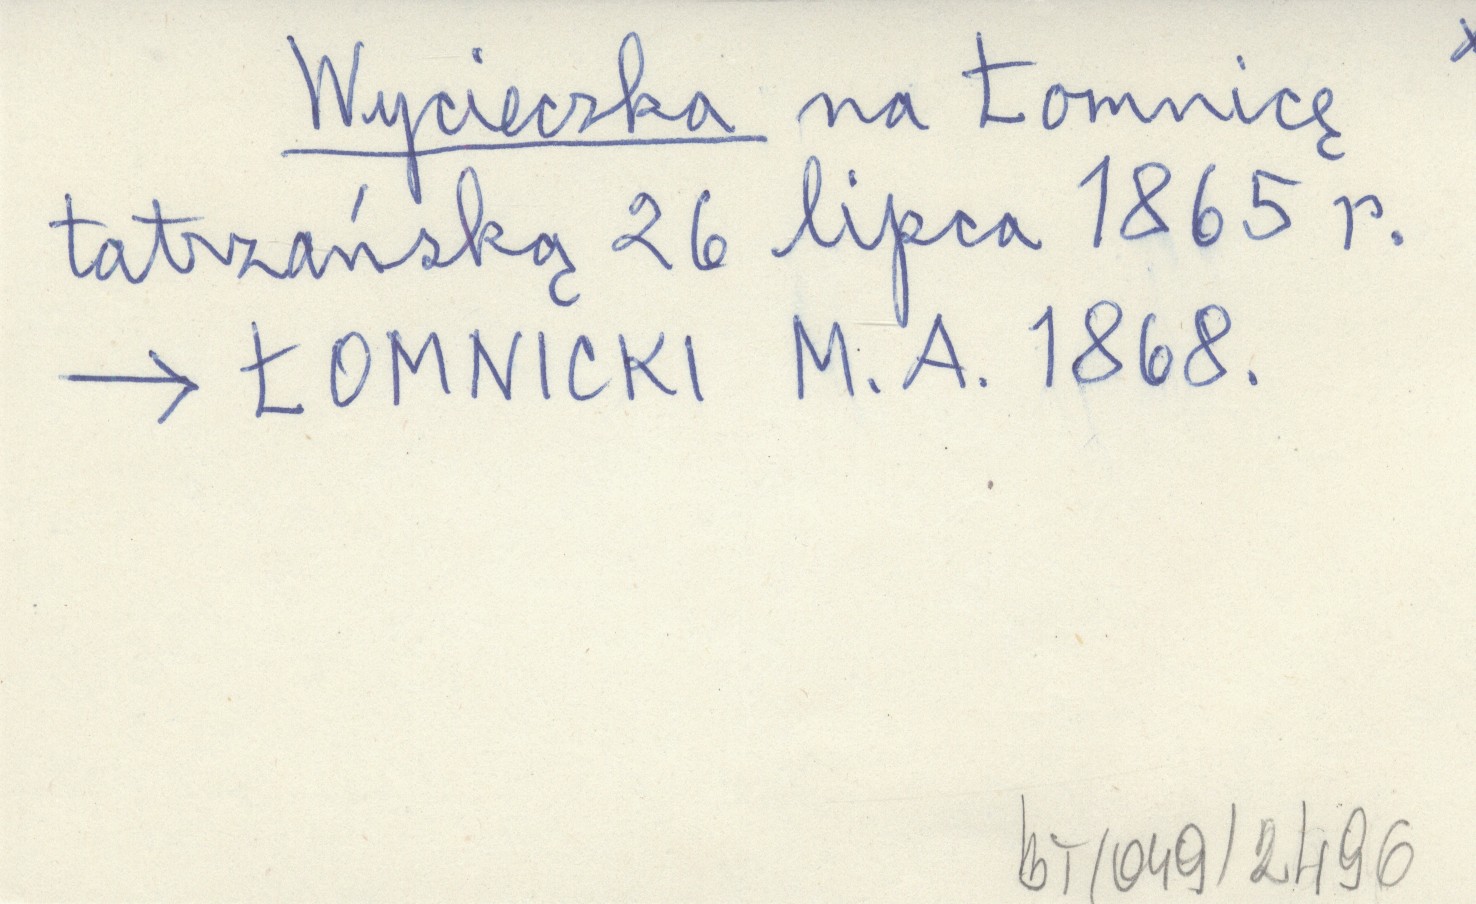 Wycieczka na Łomnicę x
tatrzańską 26 lipca 1865 r.
→ ŁOMNICKI M. A. 1868.
BT/049/2496